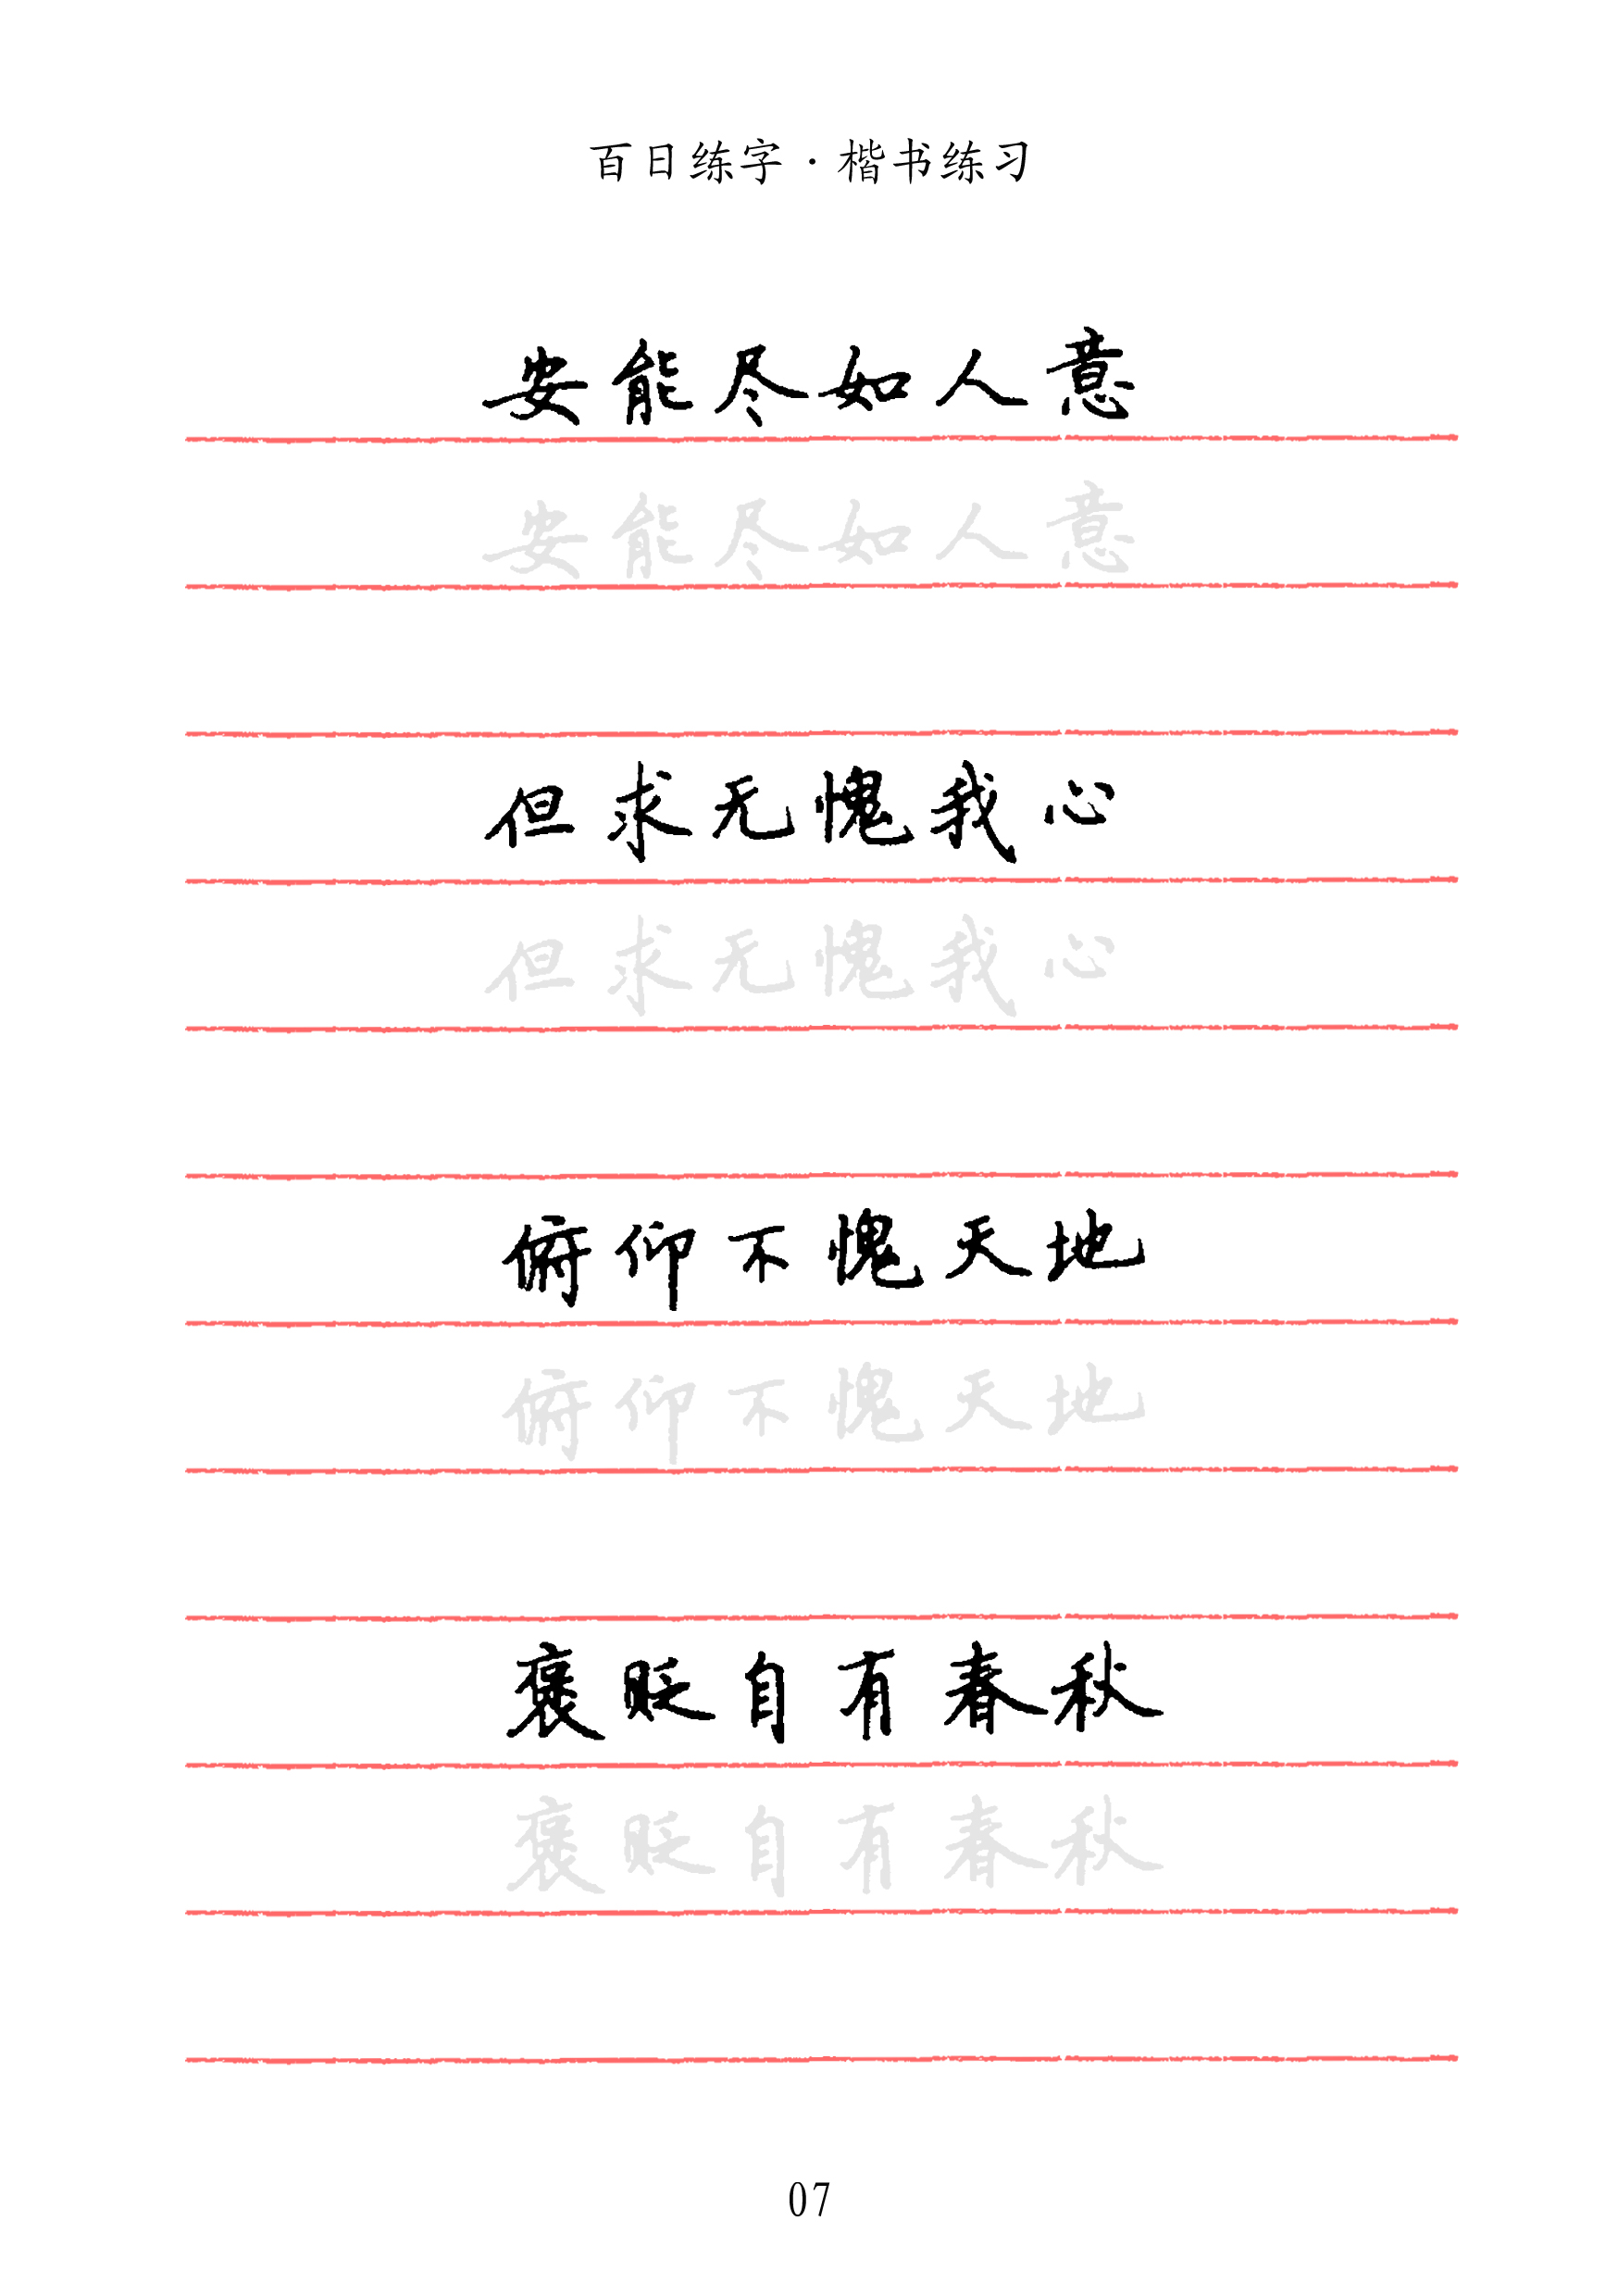 百日练字·楷书练习
安能尽如人意
安能尽如人意
但求无愧我心
但求无愧我心
俯仰不愧天地
俯仰不愧天地
褒贬自有春秋
褒贬自有春秋
07